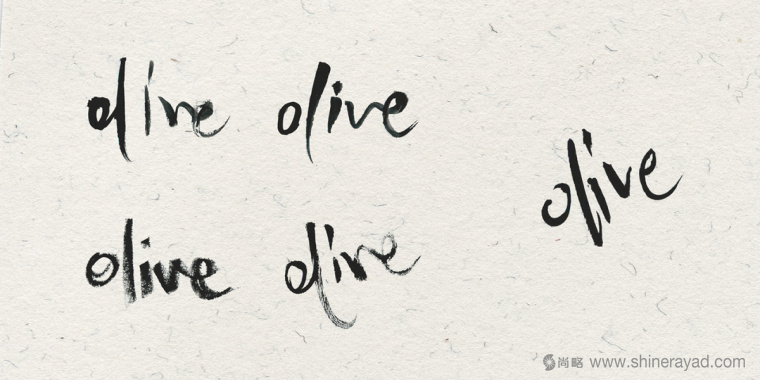 olive olive
olive
olive olive
尚略 www.shinerayad.com